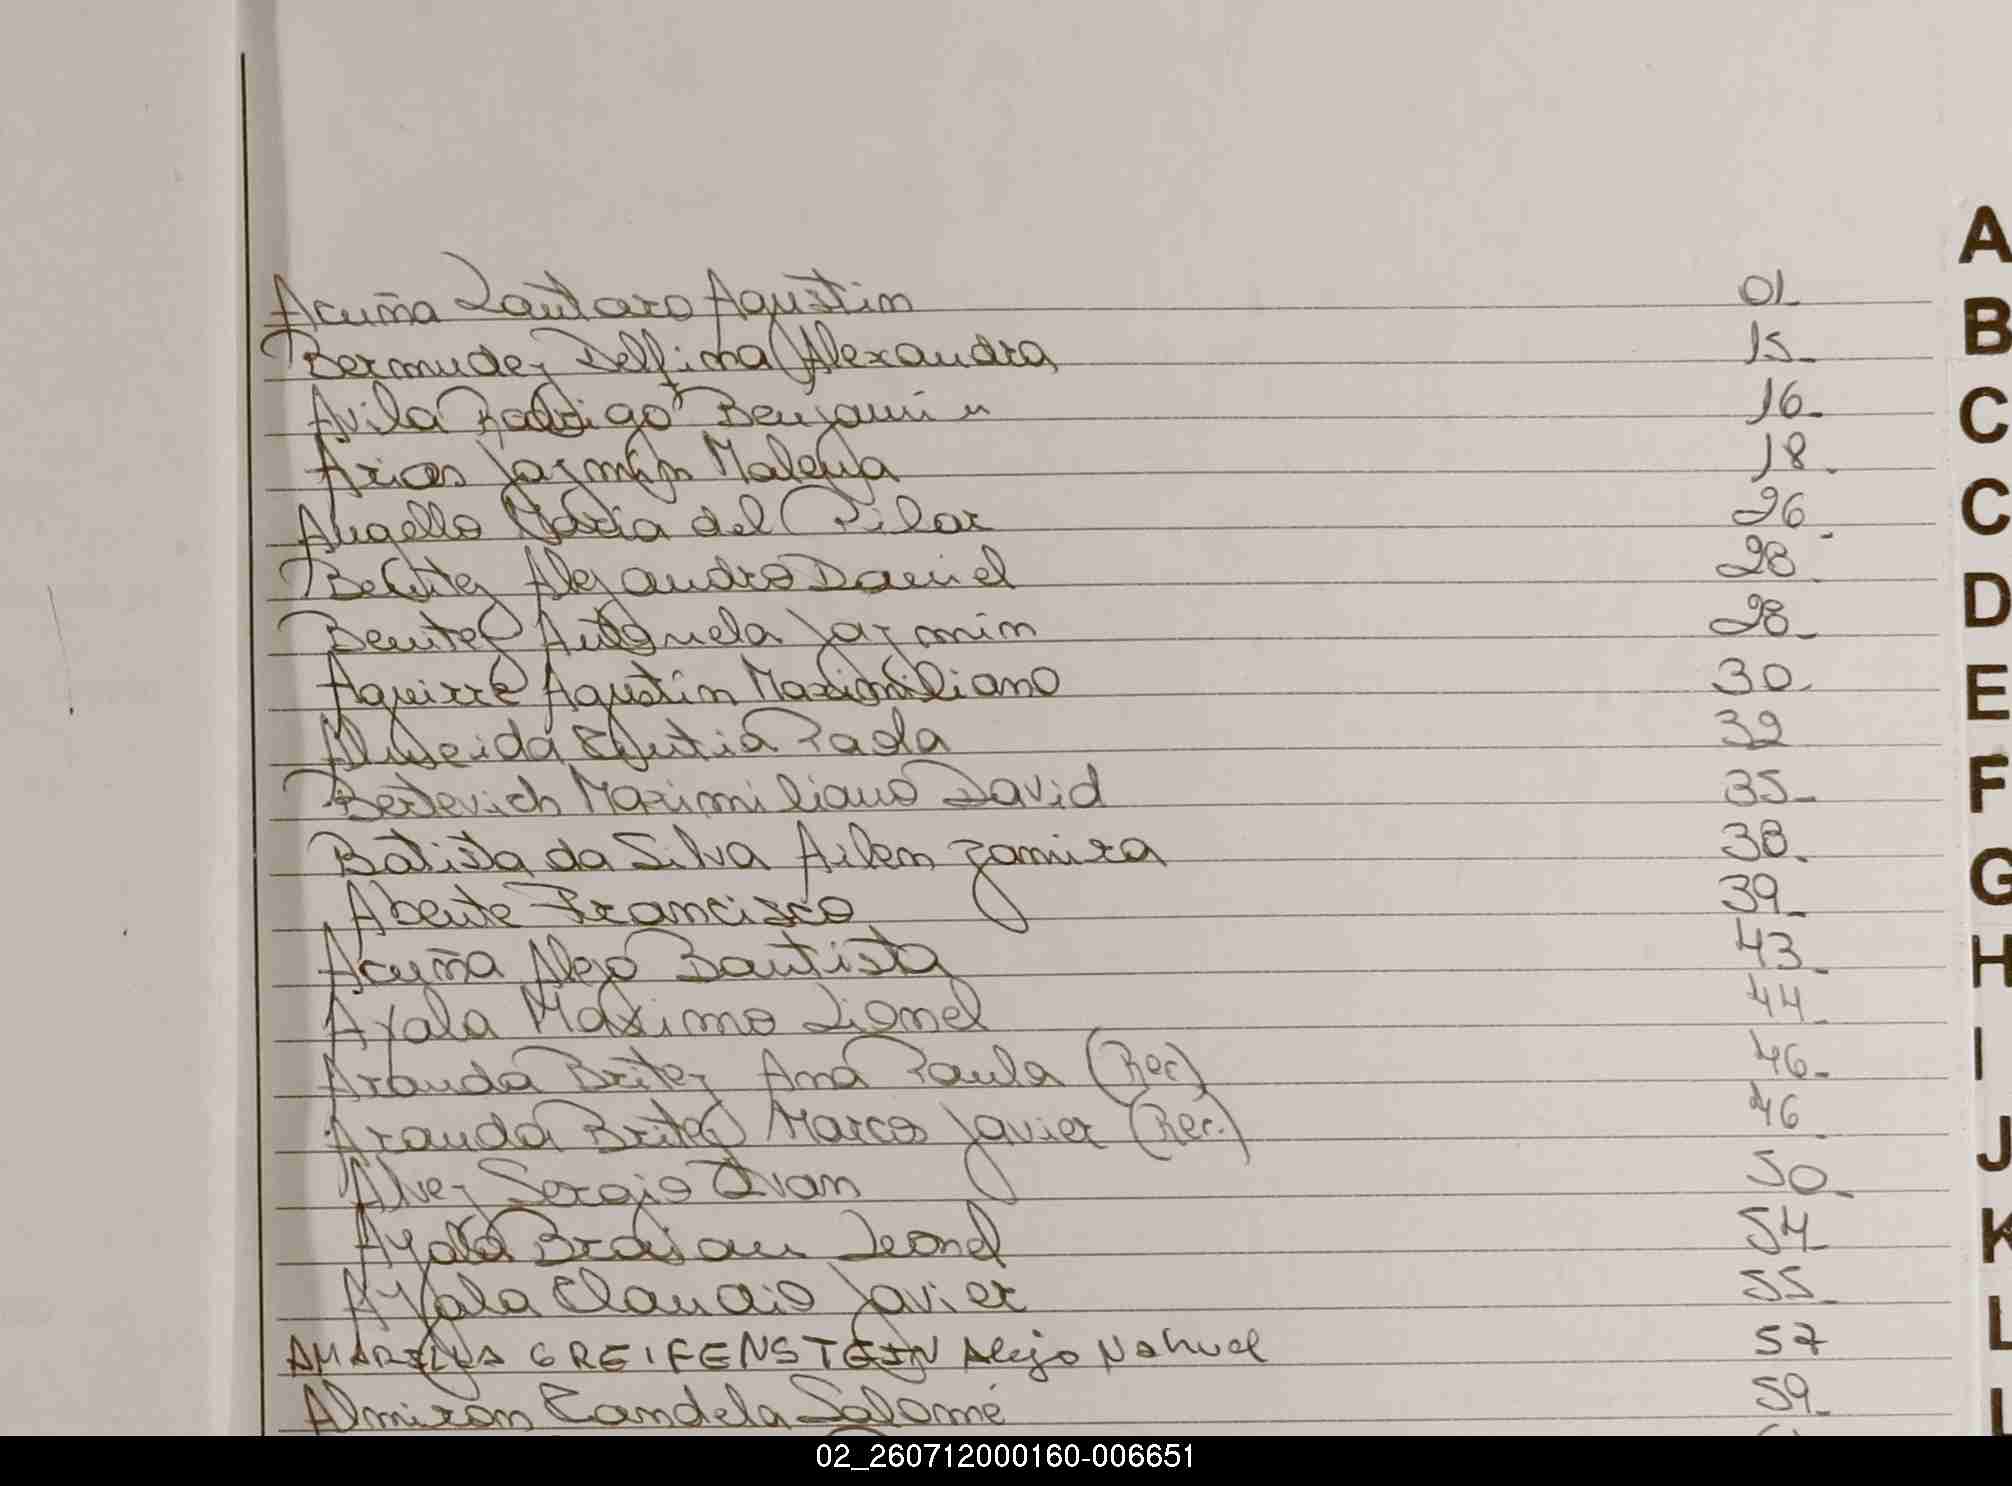 A
Acuña Lautaro Agustin 01
B
Bermudez Delfina Alexandra 15
Avila Rodrigo Benjamin 16
C
Arias Jazmin Malena 18
Augello Maria del Pilar 26
C
Benitez Alejandro Daniel 28
D
Benitez Antonela Jazmin 28
Aguirre Agustin Maximiliano 30
E
Almeida Cyntia Paola 32
Bertevich Maximiliano David 35
F
Batista da Silva Ailen Zamira 38
G
Abente Francisco 39
Acuña Alejo Bautista 43
H
Ayala Maximo Lionel 44
Aranda Britez Ana Paula (Rec) 46
I
Aranda Britez Marcos Javier (Rec.) 46
J
Alvez Sergio Ivan 50
Ayala Braian Leonel 54
K
Ayala Claudio Javier 55
L
AMARILLA GREIFENSTEIN Alejo Nahuel 57
Almiron Candela Salomé 59
02_260712000160-006651